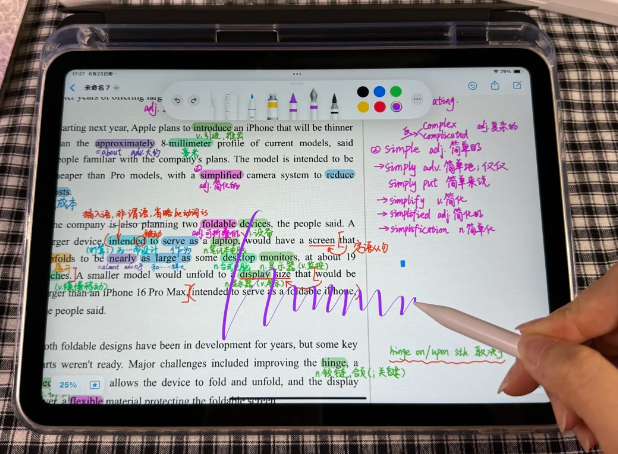 17:27 6月23日周一
79%
未命名 7
adj.
ating.
complex
complicated adj 复杂的
arting next year, Apple plans to introduce an iPhone that will be thinner
an the approximately 8-millimeter profile of current models, said
=about adv.大约
毫米
eople familiar with the company's plans. The model is intended to be
eaper than Pro models, with a simplified camera system to reduce
adj.简化的
osts.
成本
② simple adj. 简单的
→simply adv. 简单地; 仅仅
simply put 简单来说
→simplify v. 简化
→simplified adj 简化的
→simplification n 简单化
插入语, 非谓语, 省略
he company is also planning two foldable devices, the people said. A
rger device, intended to serve as a laptop, would have a screen that
定语从句
nfolds to be nearly as large as some desktop monitors, at about 19
n.显示器 (v.监视)
ches. A smaller model would unfold to a display size that would be
rger than an iPhone 16 Pro Max, intended to serve as a foldable iPhone,
e people said.
hinge on/upon sth 取决于
oth foldable designs have been in development for years, but some key
rts weren't ready. Major challenges included improving the hinge, a
n.铰链, 合页 (; 关键)
25%
allows the device to fold and unfold, and the display
er, a flexible material protecting the foldable screen.